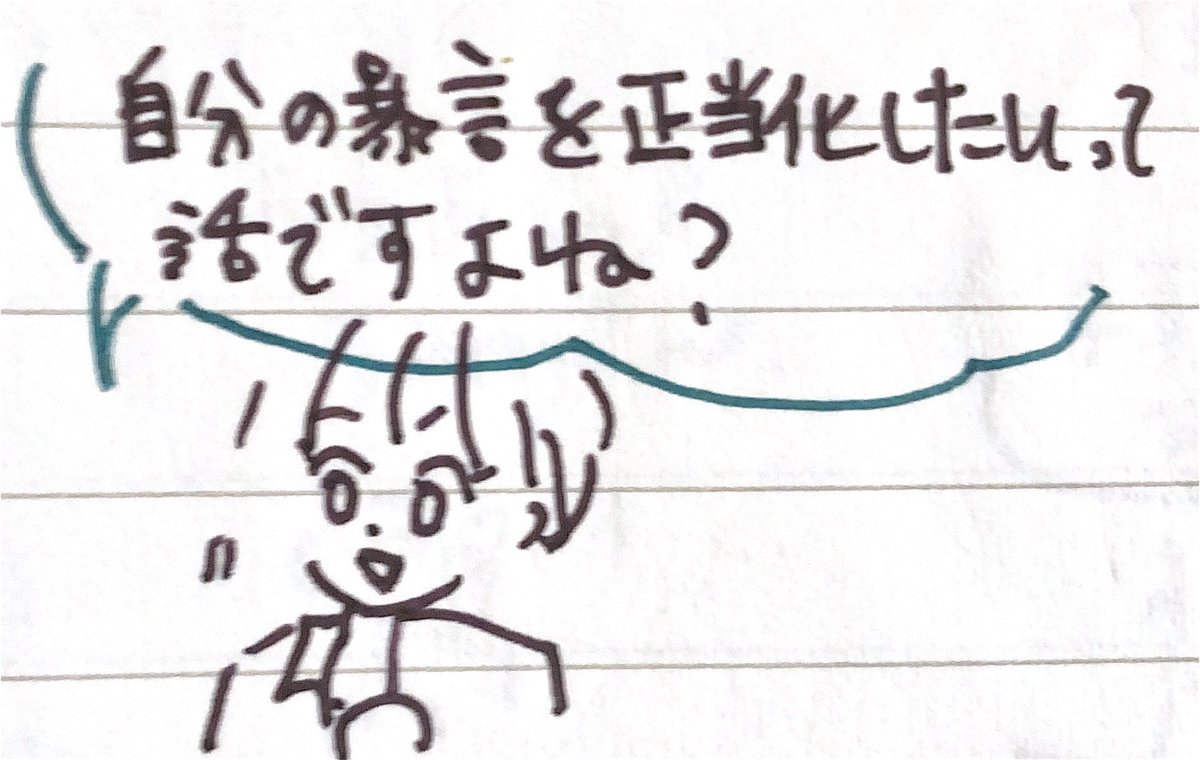 自分の暴言を正当化したいって
話ですよね?